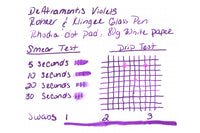 DeAtramentis Violets
Rohrer & Klingner Glass Pen
Rhodia dot pad, 80g White paper
Smear Test
Drip Test
5 Seconds
10 Seconds
20 Seconds
30 Seconds
Swabs 1 2 3